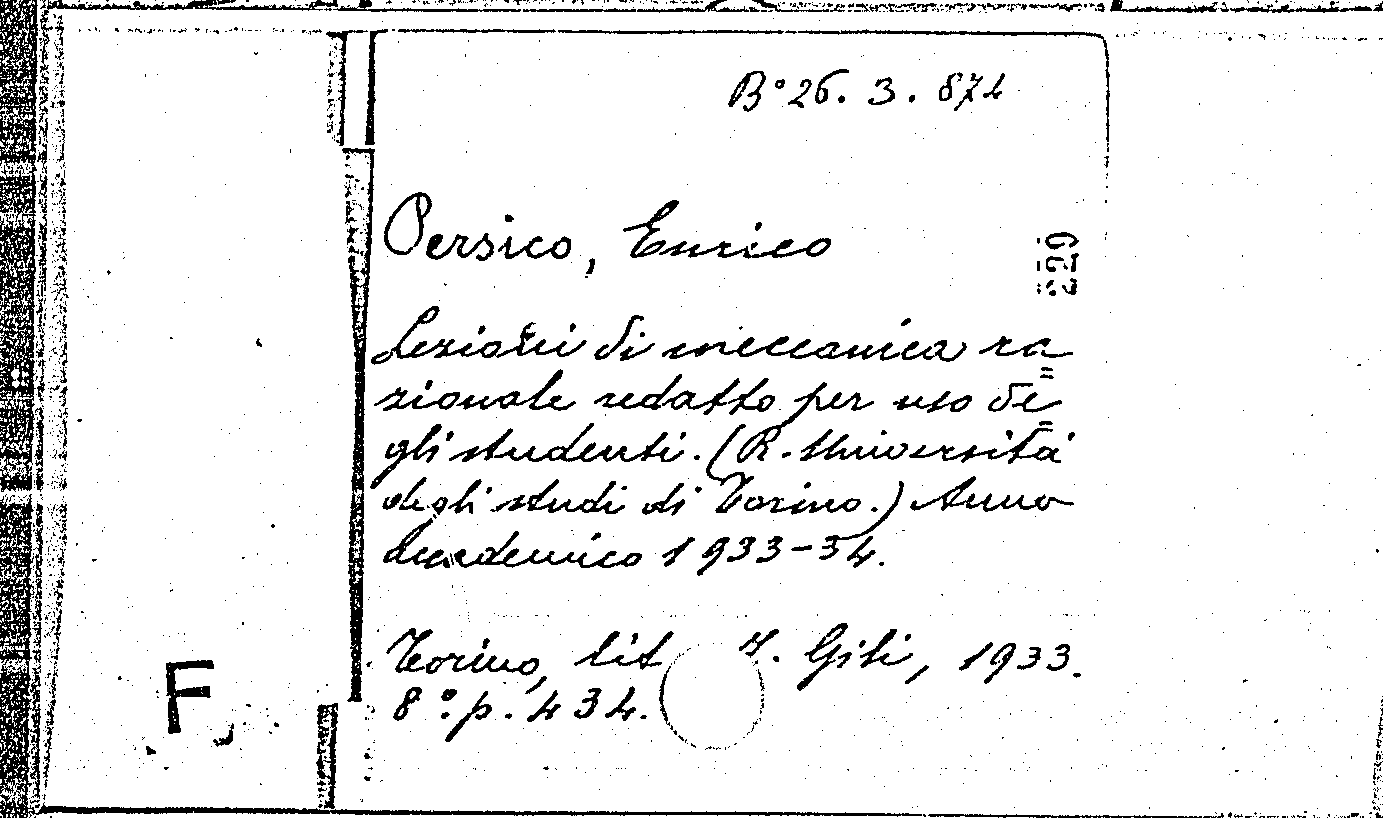 B° 26. 3. 874
Persico, Enrico
229
Lezioni di meccanica ra=
zionale redatto per uso de=
gli studenti. (R. Università
degli studi di Torino.) Anno
Accademico 1933-34.
Torino, lit T. Gili, 1933.
8°. p. 434.
F